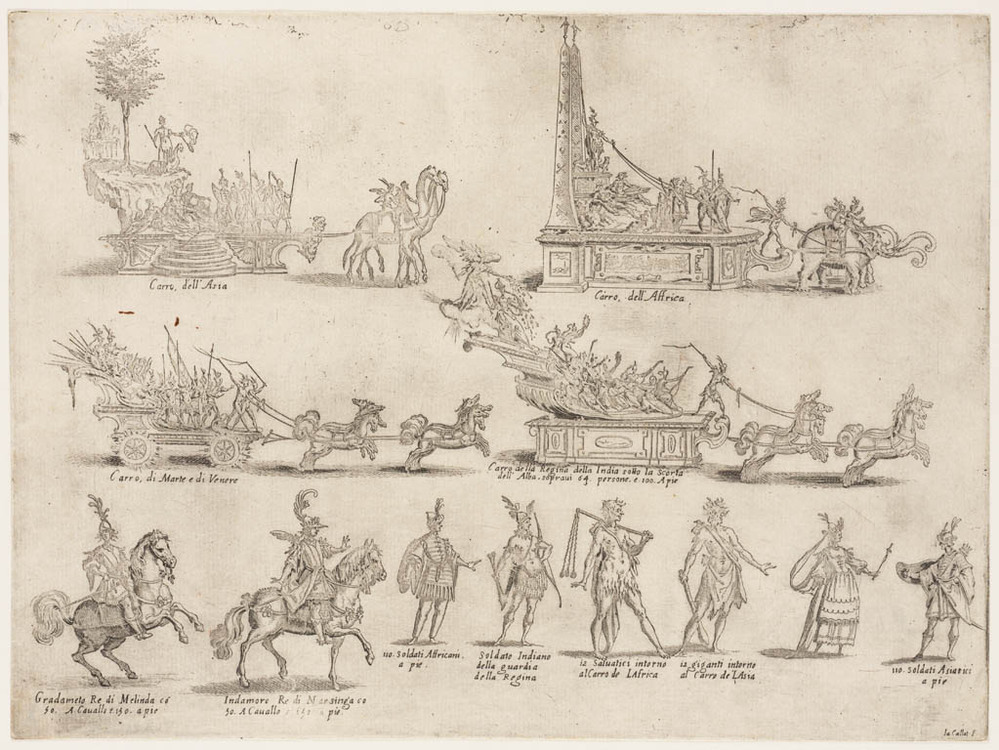 Carro, dell'Asia
Carro, dell'Affrica
Carro, di Marte e di Venere
Carro della Regina della India sotto la Scorta
dell'Alba. sopravi 64. persone. e 100. A pie
Gradameto Re di Melinda co
50. A Cavallo e 150. a pie
Indamoro Re di Narsinga co
50. A Cavallo a pie
110. Soldati Affricani.
a pie.
Soldato Indiano
della guardia
della Regina
12 Saluatici intorno
al Carro de LAfrica
12 giganti intorno
al Carro de LAsia
110. Soldati Asiatici
a pie
Ia Callot F